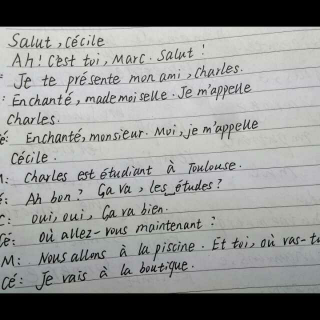 Salut, Cécile
Ah! C'est toi, Marc. Salut!
: Je te présente mon ami, Charles.
: Enchanté, mademoiselle. Je m'appelle
Charles.
é: Enchanté, monsieur. Moi, je m'appelle
Cécile.
M: Charles est étudiant à Toulouse.
é: Ah bon? Ça va, les études?
C: oui, oui, Ça va bien.
Cé: où allez-vous maintenant?
M: Nous allons à la piscine. Et toi, où vas-tu
Cé: Je vais à la boutique.